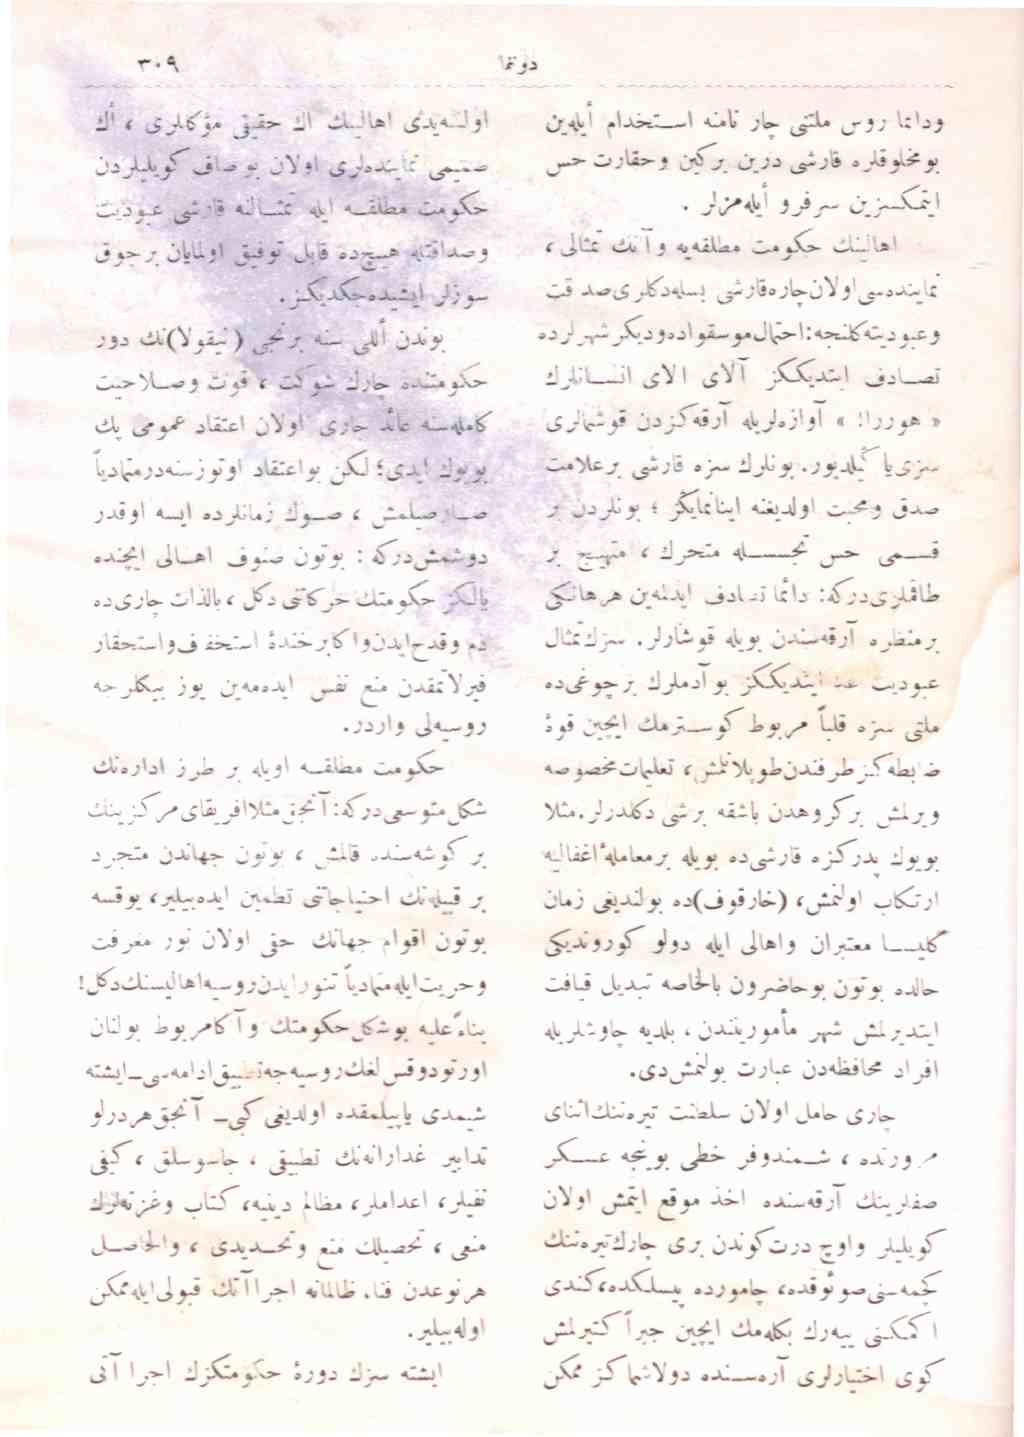 دوننما
٣٠٩
ودائما روس ملتنی چار نامنه استخدام أیله‌ین
بو مخلوقلره قارشی درین برکین و حقارت حس
ایتمکسزین سرفرو أیله‌مزلر .
اهالینك حکومت مطلقه‌یه و آنك تمثالی ،
نماینده‌سی اولان چاره قارشی بسله‌دکلری صدقت
وعبودیته کلنجه : احتمال موسقواده و دیکر شهرلرده
تصادف ایتدیککز آلای الای انسانلرك
« هوررا! » آوازه‌لریله آرقه‌کزدن قوشمالری
سزی یا کیلدیور . بونلرك سزه قارشی بر علامت
صدق و محبت اولدیغنه اینانمایکز ؛ بونلردن بر
قسمی حس تجسسله متحرك ، متهیج بر
طاقملری‌درکه : دائما تصادف ایدله‌ین هر هانکی
بر منظره آرقه‌سندن بویله قوشارلر . سزك تمثال
عبودیت عد ایتدیککز بو آدملرك بر چوغی‌ده
ملتی سزه قلباً مربوط کوسترمك ایچین قوهٔ
ضابطه‌کز طرفندن طوپلانلمش ، تعلیمات مخصوصه
ویرلمش بر کروهدن باشقه بر شی دکلدرلر . مثلا
بویوك پدرکزه قارشی‌ده بویله بر معاملهٔ اغفالیه
ارتکاب اولنمش ، (خارقوف) ده بولندیغی زمان
کلیسا معتبران و اهالی ایله دولو کوروندیکی
حالده بوتون بو حاضرون بالخاصه تبدیل قیافت
ایتدیرلمش شهر مأمورینندن ، بلدیه چاوشلریله
افراد محافظه‌دن عبارت بولنمش‌دی .
چاری حامل اولان سلطنت تیره‌ننك اثنای
مرورنده ، شمندوفر خطی بوینجه عسکر
صفلرینك آرقه‌سنده اخذ موقع ایتمش اولان
کویلیلر و اوچ درت کوندن بری چارك تیره‌ننك
کچمه‌سنی صوئوقده ، چامورده پیسلکده ، کندی
اکمکنی ییه‌رك بکله‌مك ایچین جبراً کتیرلمش
کوی اختیارلری آره‌سنده دولاشماکز ممکن
اولسه‌یدی اهالینك اك حقیقی مؤکللری ، اك
صمیمی نماینده‌لری اولان بو صاف کویلیلردن
حکومت مطلقه ایله تمثالنه قارشی عبودیت
وصداقتله هیچ‌ده قابل توفیق اولمایان بر چوق
سوزلر ایشیده‌جکدیکز .
بوندن أللی سنه برنجی (نیقولا) نك دور
حکومتنده چارك شوکت ، قوت وصلاحیت
کامله‌سنه عائد جاری اولان اعتقاد عمومی پك
بویوك ایدی ؛ لکن بو اعتقاد اوتوز سنه‌در متمادیاً
صارصیلمش ، صوك زمانلرده ایسه اوقدر
دوشمش‌درکه : بوتون صنوف اهالی ایچنده
یالکز حکومتك حرکاتنی دکل ، بالذات چاری‌ده
ذم و قدح ایدن و اکا بر خندهٔ استخفاف و استحقار
فیرلاتمقدن منع نفس ایده‌مه‌ین یوز بیکلرجه
روسیه‌لی واردر .
حکومت مطلقه اویله بر طرز اداره‌نك
شکل متوسعی‌درکه : آنجق مثلا افریقای مرکزینك
بر کوشه‌سنده قالمش ، بوتون جهاندن متجرد
بر قبیله‌نك احتیاجاتنی تطمین ایده‌بیلیر ، یوقسه
بوتون اقوام جهانك حقی اولان نور معرفت
و حریت ایله متمادیاً تنور ایدن روسیه اهالیسنك دکل !
بناءً علیه بو شکل حکومتك و آکا مربوط بولنان
اورتودوقس‌لغك روسیه‌جه تطبیق ادامه‌سی ـ ایشته
شیمدی یاپیلمقده اولدیغی کبی ـ آنجق هر درلو
تدابیر غدارانه‌نك تطبیقی ، جاسوسلق ، کیفی
نفیلر ، اعداملر ، مظالم دینیه ، کتاب و غزته‌لرك
منعی ، تحصیلك منع وتحدیدی ، والحاصل
هر نوعدن فنا ، ظالمانه اجراآتك قبولی ایله ممکن
اوله‌بیلیر .
ایشته سزك دورهٔ حکومتکزك اجراآتی